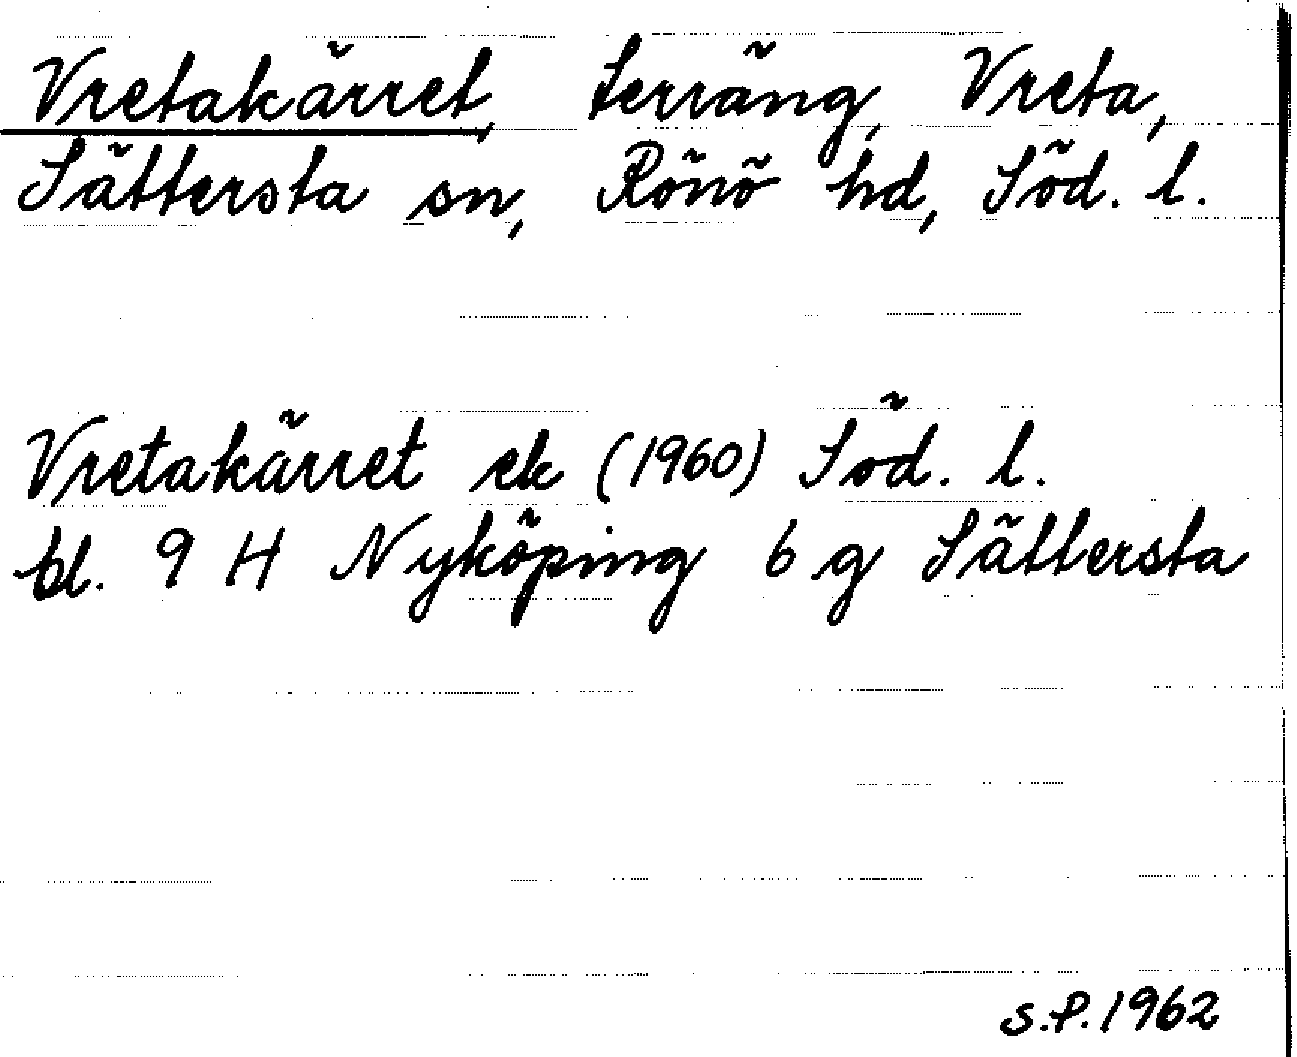 Vretakärret, terräng, Vreta,
Sättersta sn, Rönö hd, Söd. l.
Vretakärret ek (1960) Söd. l.
bl. 9 H Nyköping 6 g Sättersta
S.P. 1962